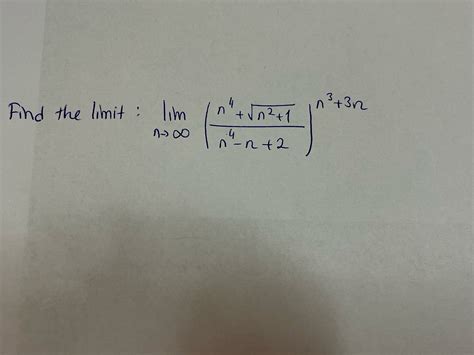 Find the limit : lim n→∞ ( (n⁴ + √(n²+1)) / (n⁴ - n + 2) )^(n³+3n)